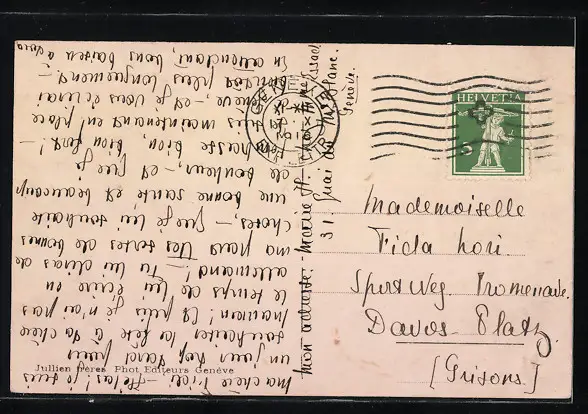 Ma chère Fida! — Hélas! je suis
un jour trop tard pour
souhaiter la fête à ta chère
maman! Et puis je n'ai pas
le temps de lui écrire en
allemand! — Tu lui diras de
ma part des sortes de bonnes
choses, — que je lui souhaite
une bonne santé et beaucoup
de bonheur, — et que je
pense bien, bien fort! —
maintenant place
Genève, — et je vous écrirai
bientôt plus longuement. —
En attendant, bons baisers à
Mon adresse:
31. Quai du Mt. Blanc.
Genève.
HELVETIA
5
Mademoiselle
Fida
Sportweg Promenade.
Davos-Platz
[Grisons]
Jullien frères Phot Editeurs Genève